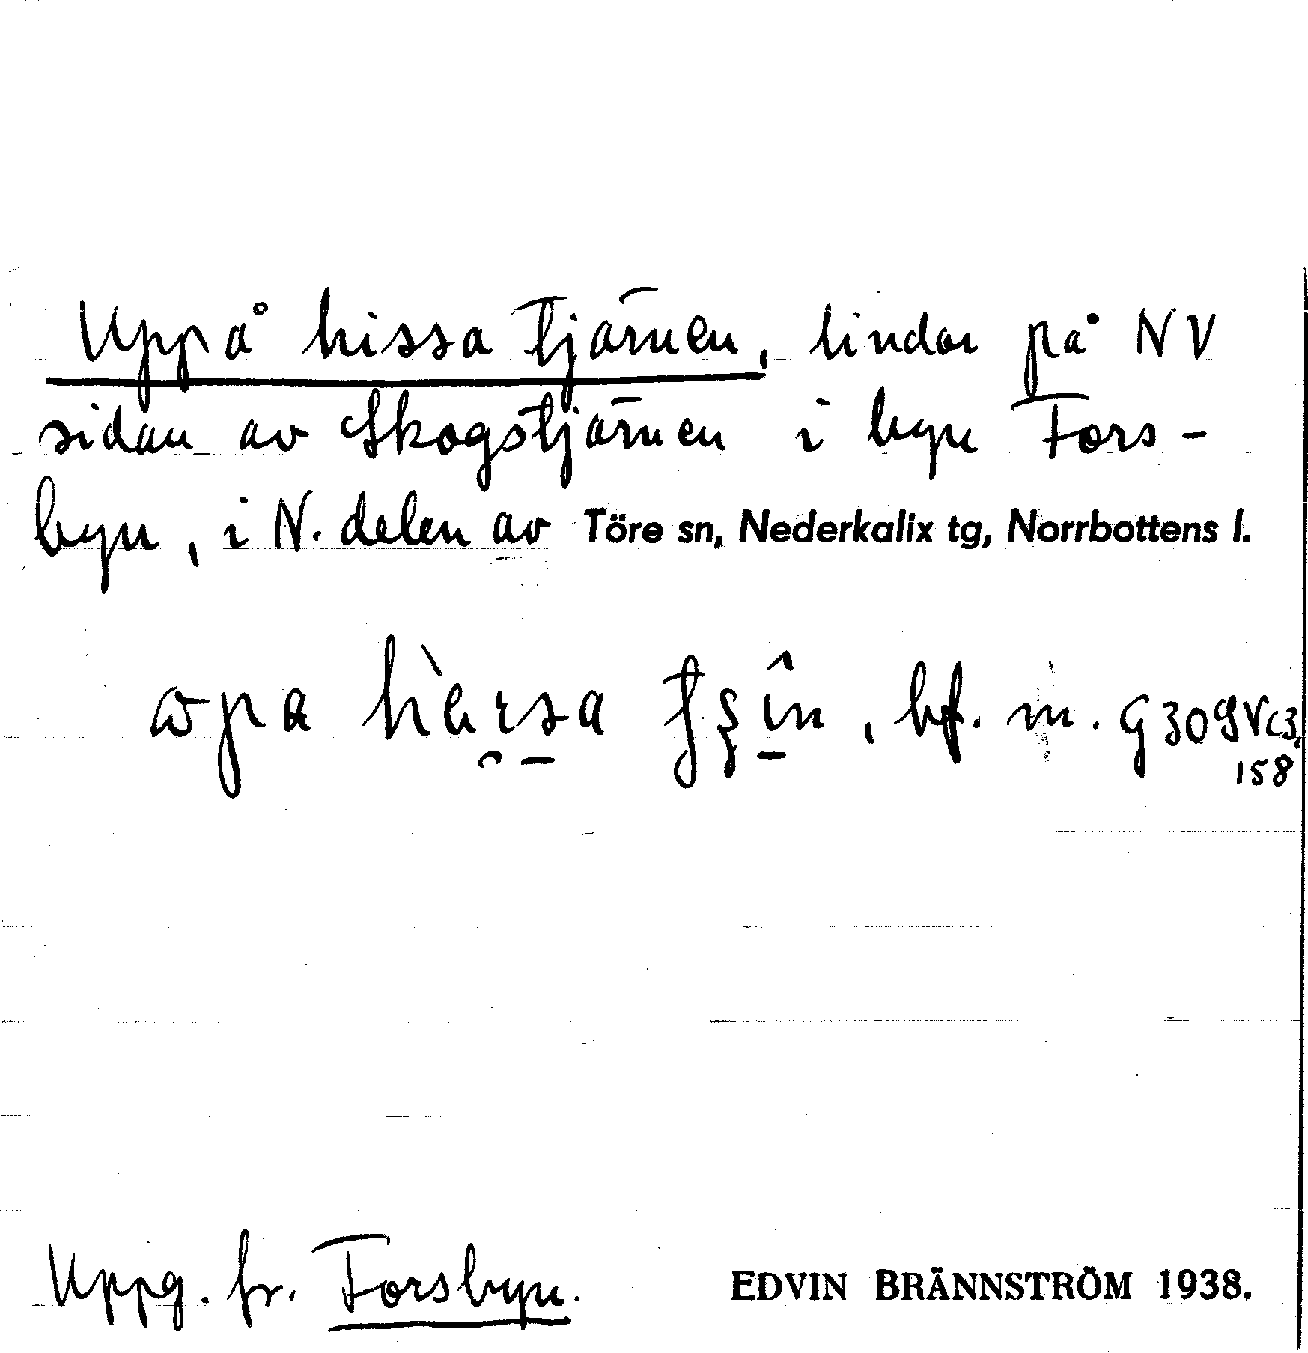 Uppå hissa Tjärnen, lindor på NV
sidan av Skogstjärnen i byn Fors-
byn, i N. delen av Töre sn, Nederkalix tg, Norrbottens l.
bf. m.
158
Uppg. fr. Forsbyn. EDVIN BRÄNNSTRÖM 1938.